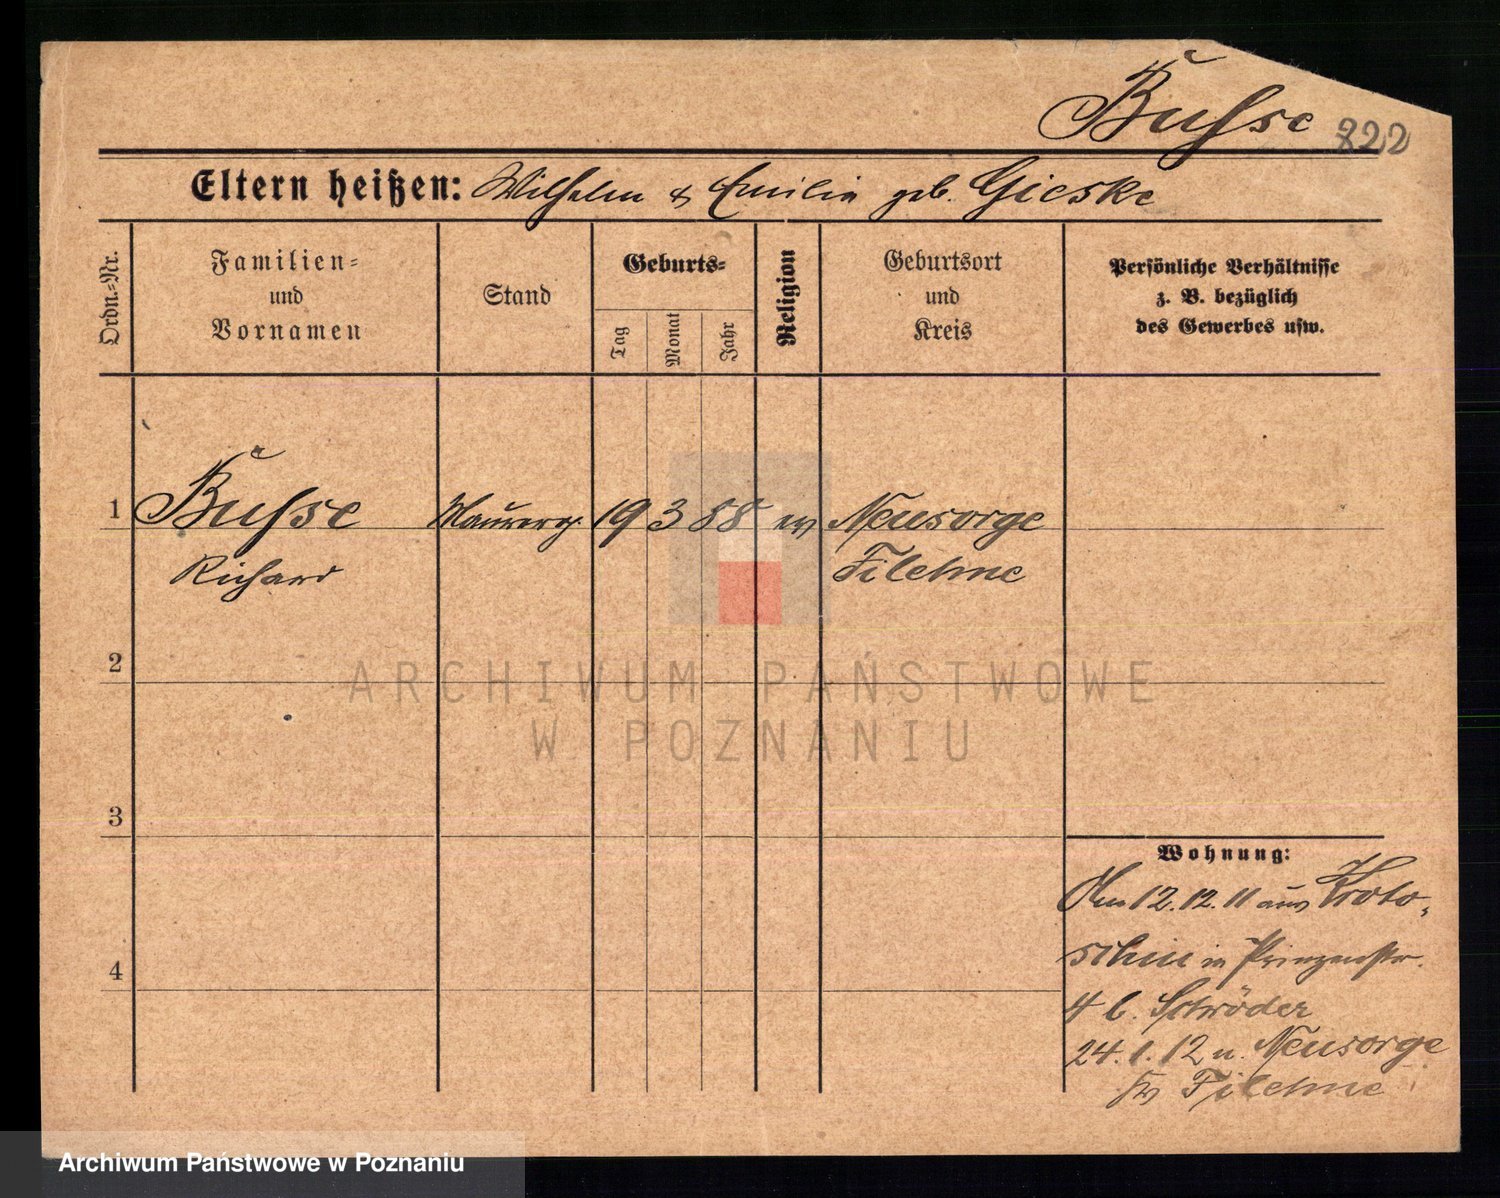 Busse 822
Eltern heißen: Wilhelm & Emilia geb. Gieske
Ordn.-Nr.
Familien-
und
Vornamen
Stand
Geburts-
Tag
Monat
Jahr
Religion
Geburtsort
und
Kreis
Persönliche Verhältnisse
z. B. bezüglich
des Gewerbes usw.
1 Busse Maurerg. 19 3 88 ev Neusorge
Richard Filehne
2
ARCHIWUM PAŃSTWOWE
W POZNANIU
3
Wohnung:
Am 12.12.11 aus Kroto-
schin in Prinzenstr.
4
4 b. Schröder
24.1.12 n. Neusorge
Kr Filehne
Archiwum Państwowe w Poznaniu